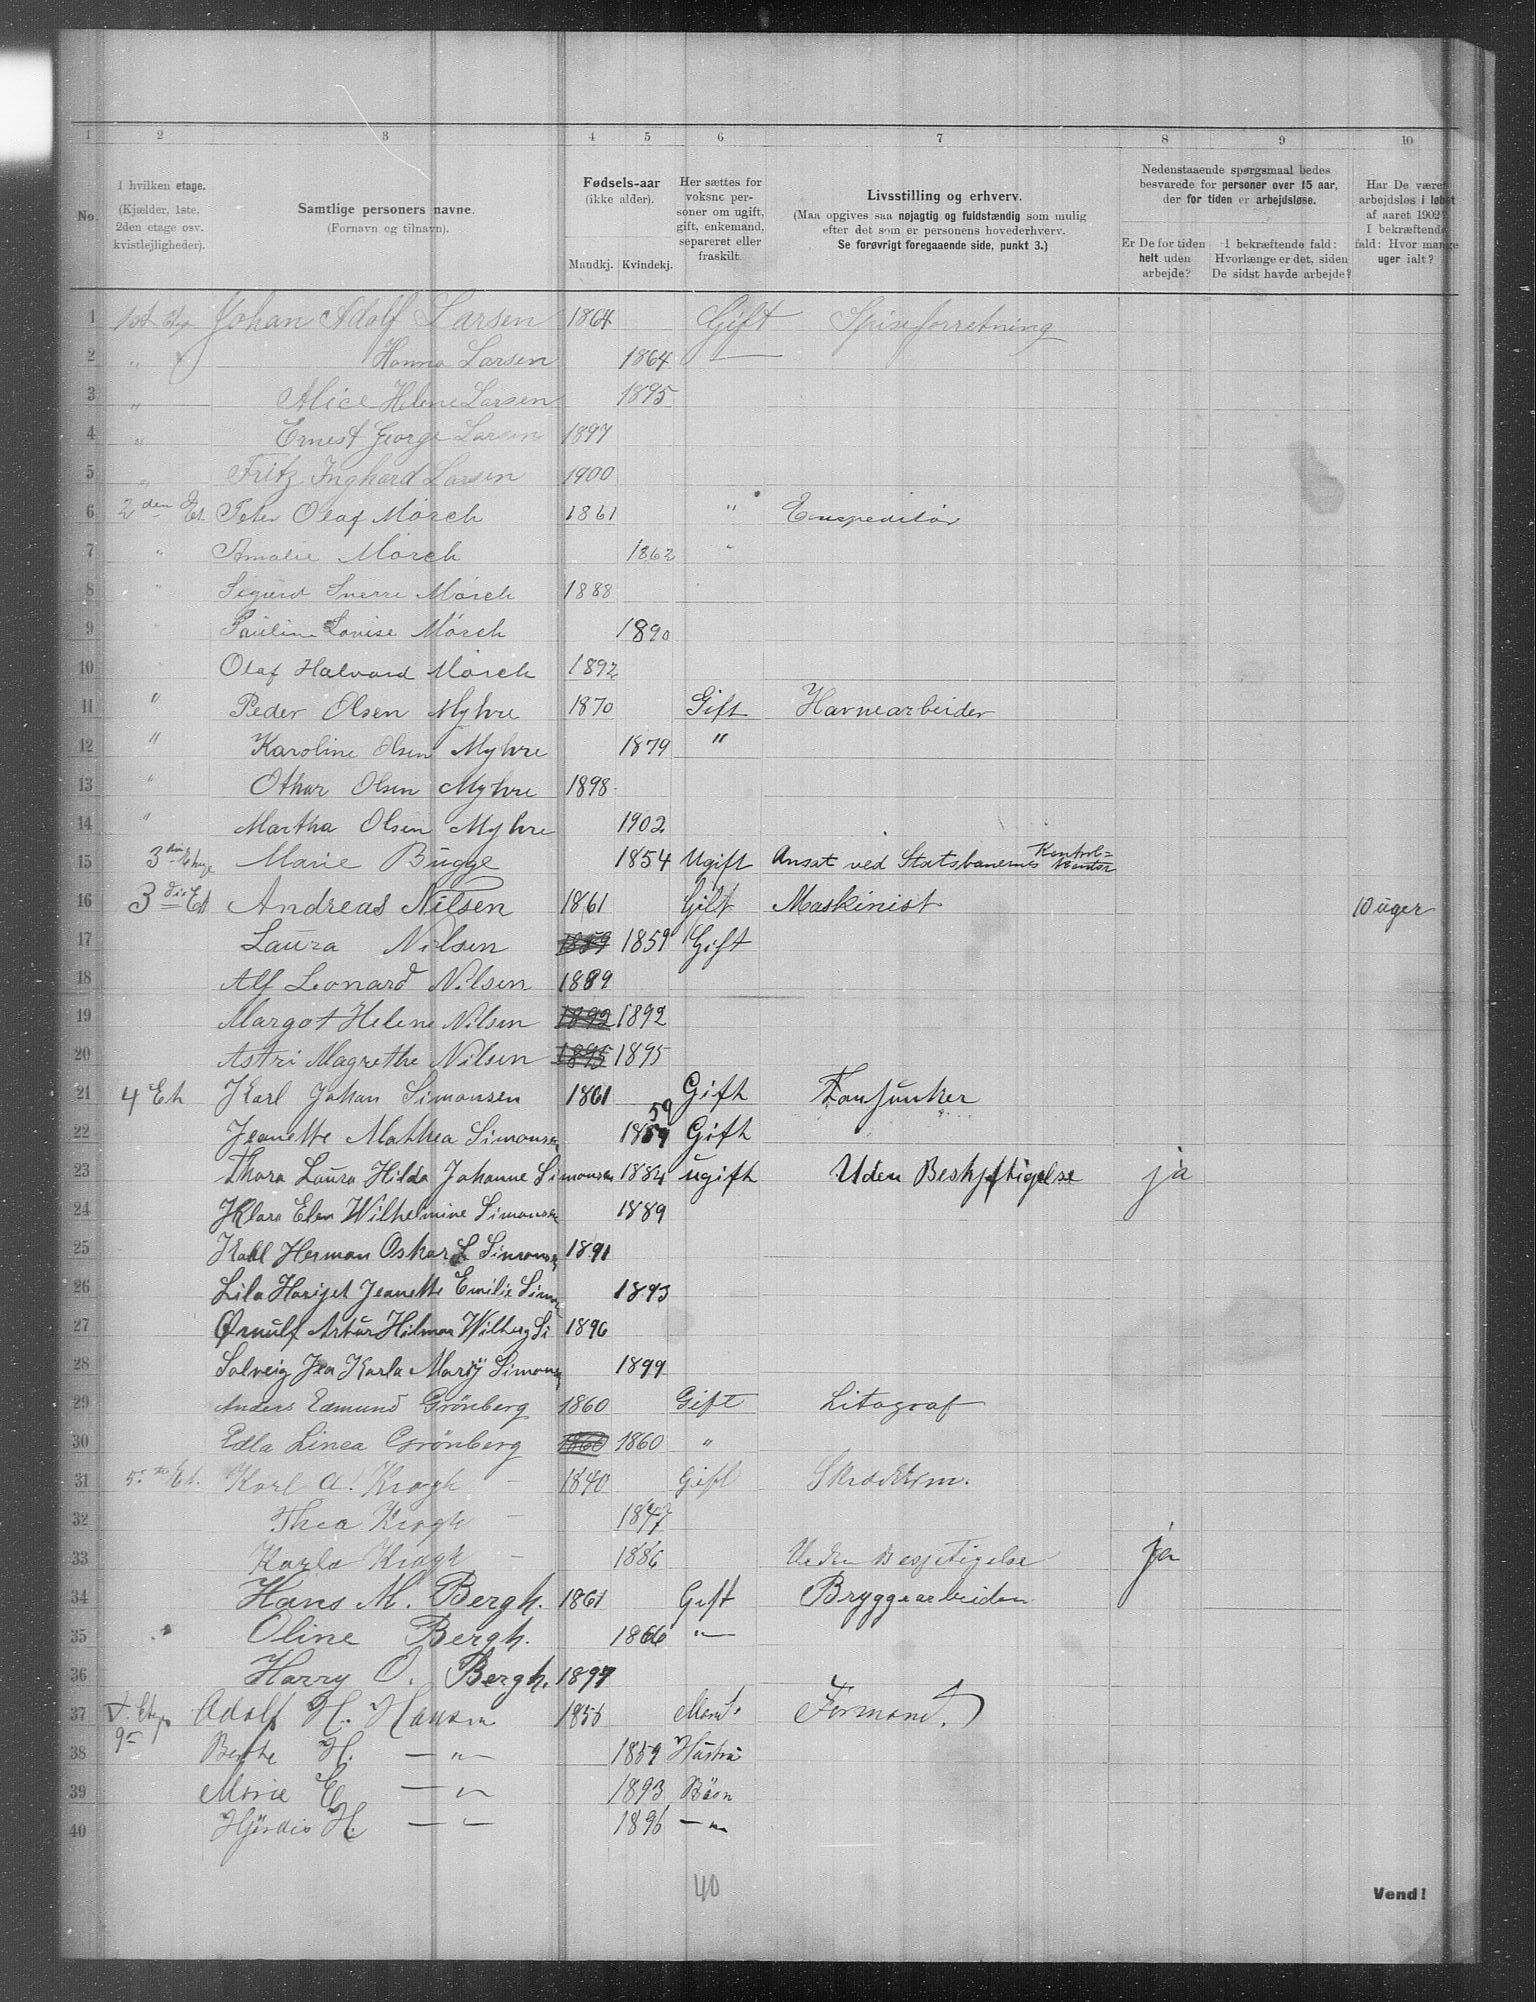 1 2 3 4 5 6 7 8 9 10
No.
I hvilken etage.
(Kjælder, 1ste,
2den etage osv.
kvistlejligheder).
Samtlige personers navne.
(Fornavn og tilnavn).
Fødsels-aar
(ikke alder).
Mandkj. Kvindekj.
Her sættes for
voksne per-
soner om ugift,
gift, enkemand,
separeret eller
fraskilt.
Livsstilling og erhverv.
(Maa opgives saa nøjagtig og fuldstændig som mulig
efter det som er personens hovederhverv.
Se forøvrigt foregaaende side, punkt 3.)
Nedenstaaende spørgsmaal bedes
besvarede for personer over 15 aar,
der for tiden er arbejdsløse.
Er De for tiden
helt uden
arbejde?
I bekræftende fald:
Hvorlænge er det, siden
De sidst havde arbejde?
Har De været
arbejdsløs i løbet
af aaret 1902?
I bekræftende
fald: Hvor mange
uger ialt?
1 1ste Johan Adolf Larsen 1864 Gift Spiseforretning
2 " Hanna Larsen 1864 —
3 " Alice Helene Larsen 1895
4 " Ernest George Larsen 1897
5 " Fritz Inghard Larsen 1900
6 2den Et. Peter Olaf Mörch 1861 " Exspeditör
7 " Amalie Mörch 1862 "
8 " Sigurd Sverre Mörch 1888
9 Pauline Lovise Mörch 1890
10 Olaf Halvard Mörch 1892
11 " Peder Olsen Myhre 1870 Gift Havnearbeider
12 " Karoline Olsen Myhre 1879 "
13 " Othar Olsen Myhre 1898
14 " Martha Olsen Myhre 1902
15 3die Etage Marie Bugge 1854 Ugift Ansat ved Statsbanernes Kontrol=
kontor
16 3die Et Andreas Nilsen 1861 Gift Maskinist 10 uger
17 Laura Nilsen 1859 1859 Gift
18 Alf Leonard Nilsen 1889
19 Margot Helene Nilsen 1892 1892
20 Astri Magrethe Nilsen 1895 1895
21 4 Et. Karl Johan Simonsen 1861 Gift
22 Jeanette Mathea Simonsen 1859 59 Gift
23 Thora Laura Hilda Johanne Simonsen 1884 ugift Uden Beskjftigelse ja
24 Klara Elen Wilhelmine Simonsen 1889
25 Karl Herman Oskar L Simonsen 1891
26 Lila Harijet Jeanette Emilie Simon 1893
27 Ørnulf Artur Hilmar Wilberg Si 1896
28 Solveig Jea Karla Marÿ Simonsen 1899
29 Anders Edmund Grönberg 1860 Gift Litograf
30 Edla Linea Grönberg 1860 1860 "
31 5. te Et. Karl A. Krogh — 1840 Gift
32 Thea Krogh — 1847
33 Karla Krogh — 1886 Uden Besjetigelse ja
34 Hans M. Bergh. 1861 Gift Bryggearbeider
35 Oline Bergh. 1866 —"—
36 Harry O. Bergh. 1897
37 V. Etage Adolf H. Hansen 1856 Mand. Formand.
38 Berthe H. —"— 1859 Hustru
39 Marie E. —"— 1893 Barn
40 Hjördis H. —"— 1896 —"—
40
Vend!